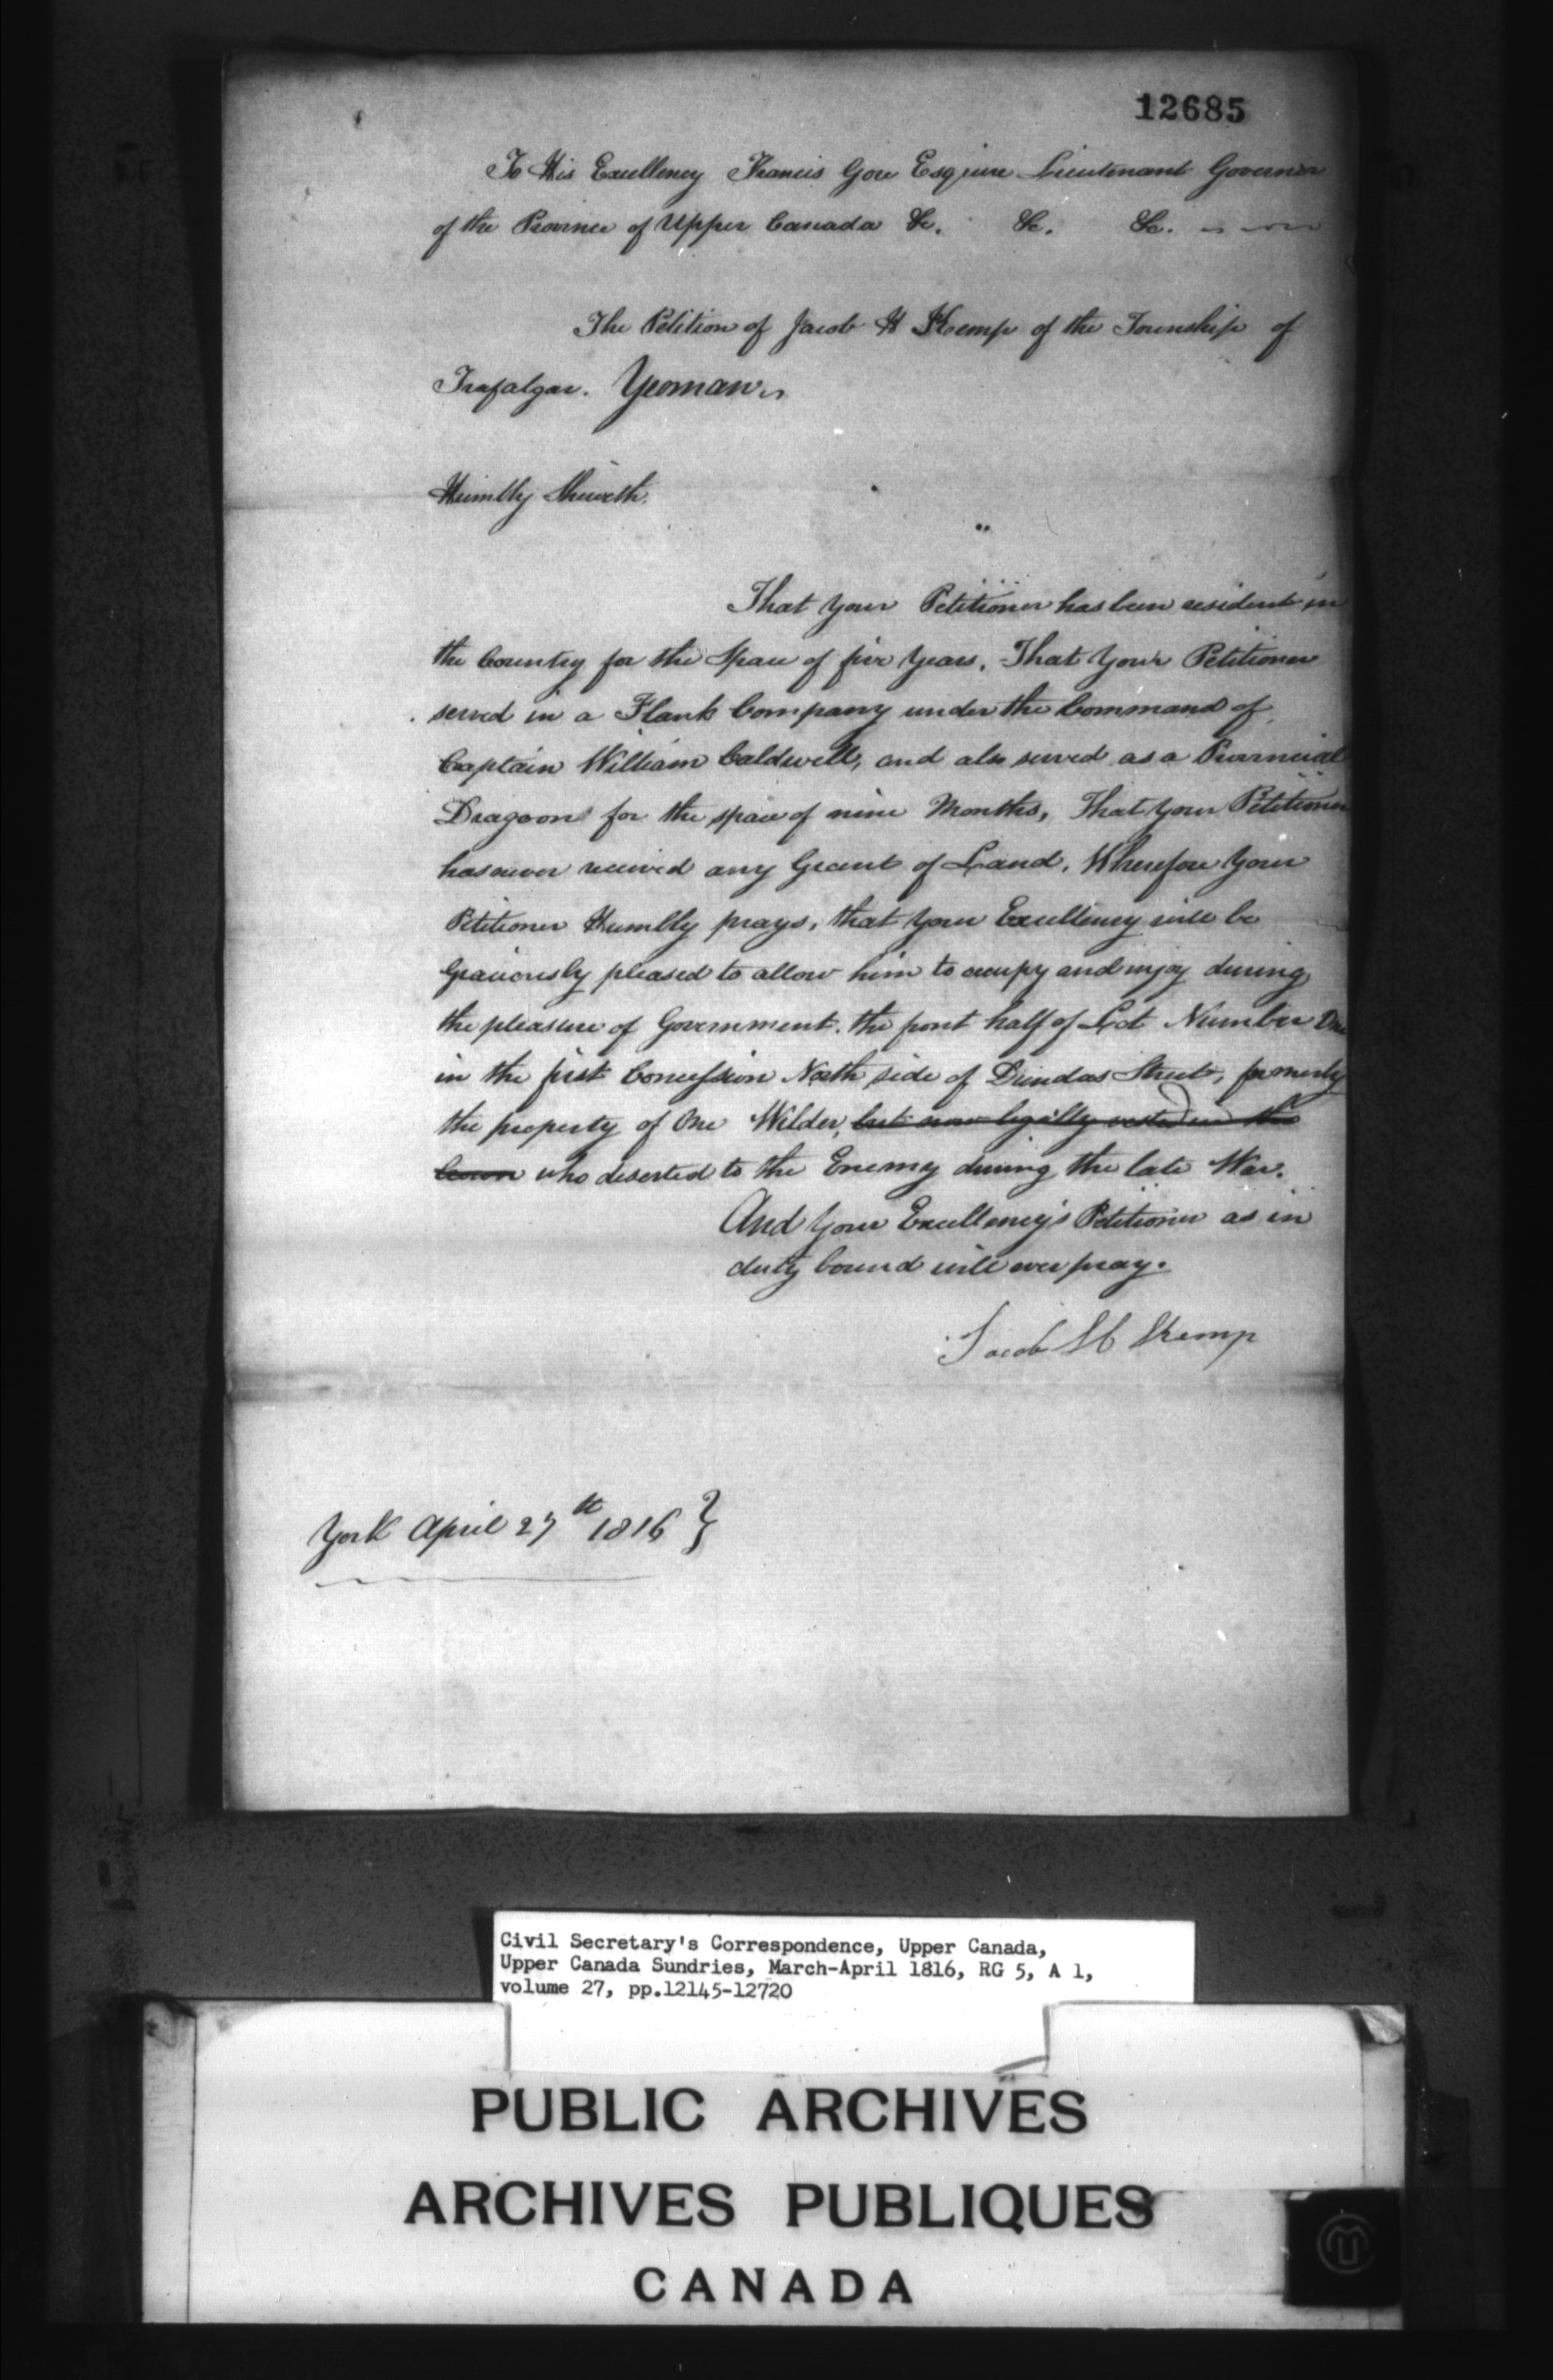 12685
To His Excellency Francis Gore Esquire Lieutenant Governor
of the Province of Upper Canada &c. &c. &c.
The Petition of Jacob H Kemp of the Township of
Trafalgar. Yeoman
Humbly Sheweth.
That your Petitioner has been resident in
the Country for the Space of five Years. That Your Petitioner
served in a Flank Company under the Command of
Captain William Caldwell, and also served as a Provincial
Dragoon for the space of nine Months, That your Petitioner
has never received any Grant of Land. Wherefore Your
Petitioner Humbly prays, that your Excellency will be
Graciously pleased to allow him to occupy and injoy during
the pleasure of Government. the front half of Lot Number One
in the first Concession North side of Dundas Street, formerly
the property of One Wilder, but now legally vested in the
Crown who deserted to the Enemy during the late War.
And Your Excellency's Petitioner as in
duty bound will ever pray.
Jacob H Kemp
York April 27th 1816 }
Civil Secretary's Correspondence, Upper Canada,
Upper Canada Sundries, March-April 1816, RG 5, A 1,
volume 27, pp.12145-12720
PUBLIC ARCHIVES
ARCHIVES PUBLIQUES
CANADA